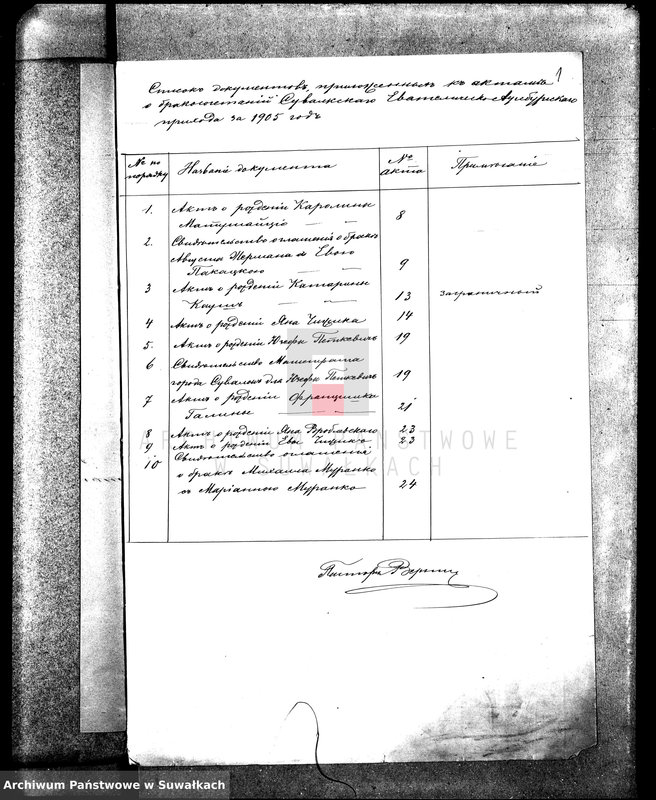 1
Списокъ документовъ, приложенныхъ къ актамъ
о бракосочетаній Сувалкскаго Евангелическо-Аугсбургскаго
прихода за 1905 годъ
№ по порядку Названіе документа № акта Примѣчаніе
1. Актъ о рожденіи Каролины
8
2. Свидѣтельство оглашенія о бракѣ
Августа Германа съ Евою
9
3 Актъ о рожденіи Катарины
13 заграничный
4 Актъ о рожденіи Яна 14
5. Актъ о рожденіи Юзефы Петкевичъ 19
6 Свидѣтельство Магистрата
города Сувалокъ для Юзефы Петкевичъ 19
7 Актъ о рожденіи Францишки
Галины 21
8 Актъ о рожденіи Яна Вроблевскаго 23
9 Актъ о рожденіи Евы 23
10 Свидѣтельство оглашенія
о бракѣ Михаила Муранко
съ Маріанною Муранко 24
Пасторъ
ARCHIWUM PAŃSTWOWE
W SUWAŁKACH
Archiwum Państwowe w Suwałkach